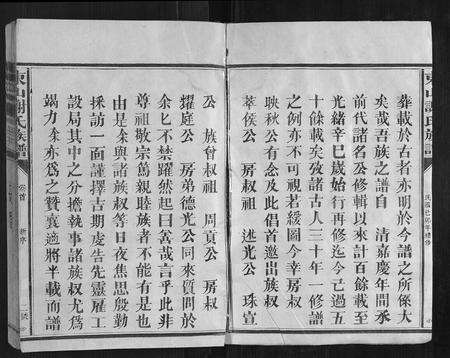 東山謝氏族譜
民國己巳年續修
葬載於右者亦明於今譜之所係大
矣哉吾族之譜自 清嘉慶年間承
前代諸名公修輯以來計百餘載至
光緒辛巳歲始行再修迄今已過五
十餘載矣效諸古人三十年一修譜
之例亦不可視若緩圖今幸房叔
映秋公有念及此倡首邀出族叔
萃侯公 房叔祖 述光公 珠宣
公 族曾叔祖 周貢公 房叔
耀庭公 房弟德光公同來質問於
余匕不禁躍然起曰善哉言乎此非
尊祖敬宗篤親睦族者不能有是也
由是余與諸族叔等日夜焦思殷勤
採訪一面謹擇古期虔告先靈雇工
設局其中之分擔執事諸族叔尤爲
竭力余亦爲之贊襄適將半載而譜
東山謝氏族譜
卷首
新序